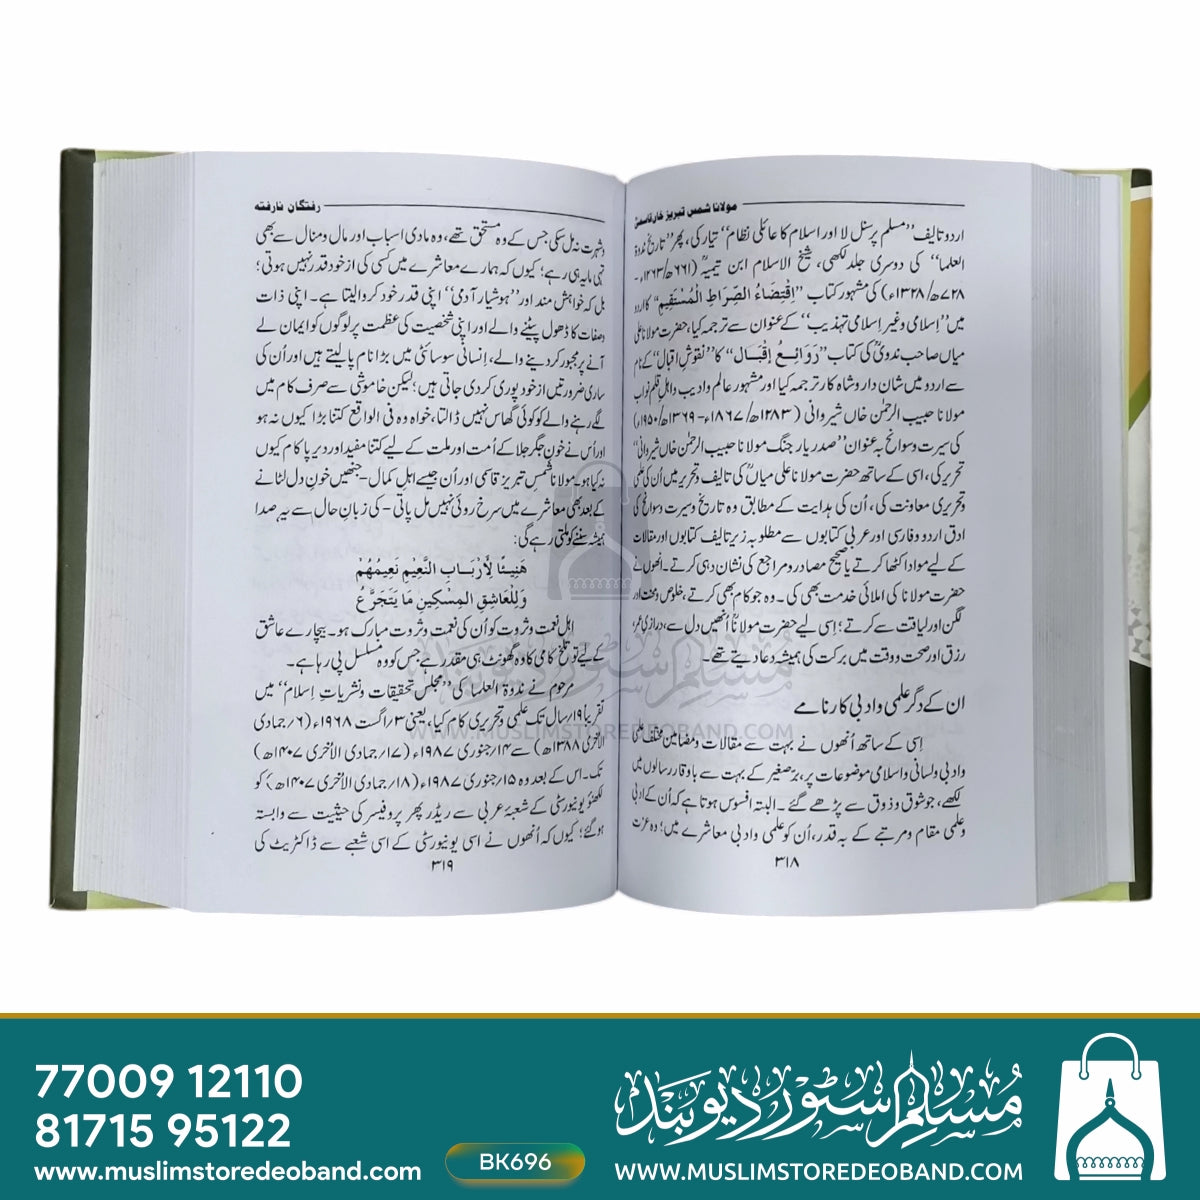 مولانا شمس تبریز خاں قاسمیؒ
اردو تالیف ’’مسلم پرسنل لا اور اسلام کا عائلی نظام‘‘ تیار کی، پھر ’’تاریخِ ندوۃ
العلما‘‘ کی دوسری جلد لکھی، شیخ الاسلام ابن تیمیہؒ (۶۶۱ھ/۱۲۶۳ء-
۷۲۸ھ/۱۳۲۸ء) کی مشہور کتاب ’’اِقْتِضَاءُ الصِّرَاطِ الْمُسْتَقِيمِ‘‘ کا اردو
میں ’’اسلامی وغیر اِسلامی تہذیب‘‘ کے عنوان سے ترجمہ کیا، حضرت مولانا علی
میاں صاحب ندویؒ کی کتاب ’’رَوَائِعُ إِقْبَال‘‘ کا ’’نقوشِ اقبال‘‘ کے نام
سے اردو میں شان دار وشاہ کار ترجمہ کیا اور مشہور عالم وادیب واہلِ قلم نواب
مولانا حبیب الرحمٰن خاں شیروانی (۱۲۸۳ھ/۱۸۶۷ء-۱۳۶۹ھ/۱۹۵۰ء)
کی سیرت وسوانح بہ عنوان ’’صدر یار جنگ مولانا حبیب الرحمٰن خاں شیروانی‘‘
تحریر کی، اسی کے ساتھ حضرت مولانا علی میاںؒ کی تالیف وتحریر میں اُن کی علمی
وتحریری معاونت کی، اُن کی ہدایت کے مطابق وہ تاریخ وسیرت وسوانح کی
ادق اردو وفارسی اور عربی کتابوں سے مطلوبہ زیرِ تالیف کتابوں اور مقالات
کے لیے مواد اکٹھا کرتے یا صحیح مصادر ومراجع کی نشان دہی کرتے۔ انھوں نے
حضرت مولانا کی املائی خدمت بھی کی۔ وہ جو کام بھی کرتے، خلوص ومحنت اور
لگن اور لیاقت سے کرتے؛ اِسی لیے حضرت مولاناؒ اُنھیں دل سے، درازیِ عمر،
رزق اور صحت ووقت میں برکت کی ہمیشہ دعا دیتے تھے۔
ان کے دگر علمی وادبی کارنامے
اِسی کے ساتھ اُنھوں نے بہت سے مقالات ومضامین مختلف علمی
وادبی ولسانی واسلامی موضوعات پر، برِّصغیر کے بہت سے باوقار رسالوں میں
لکھے، جو شوق وذوق سے پڑھے گئے۔ البتہ افسوس ہوتا ہے کہ اُن کے ادبی
وعلمی مقام ومرتبے کے بہ قدر، اُن کو علمی وادبی معاشرے میں؛ وہ عزت
۳۱۸
رفتگانِ نارفتہ
وشہرت نہ مل سکی جس کے وہ مستحق تھے، وہ مادی اسباب اور مال ومنال سے بھی
تہی مایہ ہی رہے؛ کیوں کہ ہمارے معاشرے میں کسی کی از خود قدر نہیں ہوتی؛
بل کہ خواہش مند اور ’’ہوشیار آدمی‘‘ اپنی قدر خود کروا لیتا ہے۔ اپنی ذات
وصفات کا ڈھول پیٹنے والے اور اپنی شخصیت کی عظمت پر لوگوں کو ایمان لے
آنے پر مجبور کر دینے والے، اِنسانی سوسائٹی میں بڑا نام پا لیتے ہیں اور اُن کی
ساری ضرورتیں از خود پوری کردی جاتی ہیں؛ لیکن خاموشی سے صرف کام میں
لگے رہنے والے کو کوئی گھاس نہیں ڈالتا، خواہ وہ فی الواقع کتنا بڑا کیوں نہ ہو
اور اُس نے خونِ جگر جلا کے اُمت اور ملت کے لیے کتنا مفید اور دیرپا کام کیوں
نہ کیا ہو۔ مولانا شمس تبریز قاسمی اور اُن جیسے اہلِ کمال - جنھیں خونِ دل لٹانے
کے بعد بھی معاشرے میں سرخ روئی نہیں مل پاتی - کی زبانِ حال سے یہ صدا
ہمیشہ سننے کو ملتی رہے گی:
هَنِيئًا لِأَرْبَابِ النَّعِيمِ نَعِيمُهُمْ
وَلِلْعَاشِقِ الْمِسْكِينِ مَا يَتَجَرَّعُ
اہلِ نعمت وثروت کو اُن کی نعمت وثروت مبارک ہو۔ بیچارے عاشق
کے لیے تو تلخ کامی کا وہ گھونٹ ہی مقدر ہے جس کو وہ مسلسل پی رہا ہے۔
مرحوم نے ندوۃ العلما کی ’’مجلس تحقیقات ونشریاتِ اِسلام‘‘ میں
تقریباً ۱۹/سال تک علمی وتحریری کام کیا، یعنی ۳/اگست ۱۹۶۸ء (۶/جمادی
الاُخریٰ ۱۳۸۸ھ) سے ۱۴/جنوری ۱۹۸۷ء (۱۷/جمادی الاُخریٰ ۱۴۰۷ھ)
تک۔ اس کے بعد وہ ۱۵/جنوری ۱۹۸۷ء (۱۸/جمادی الاُخریٰ ۱۴۰۷ھ) کو
لکھنؤ یونیورسٹی کے شعبۂ عربی سے ریڈر پھر پروفیسر کی حیثیت سے وابستہ
ہوگئے؛ کیوں کہ اُنھوں نے اسی یونیورسٹی کے اسی شعبے سے ڈاکٹریٹ کی
۳۱۹
مسلم سٹور دیوبند
WWW.MUSLIMSTOREDEOBAND.COM
77009 12110
81715 95122
www.muslimstoredeoband.com
BK696
مسلم سٹور دیوبند
WWW.MUSLIMSTOREDEOBAND.COM